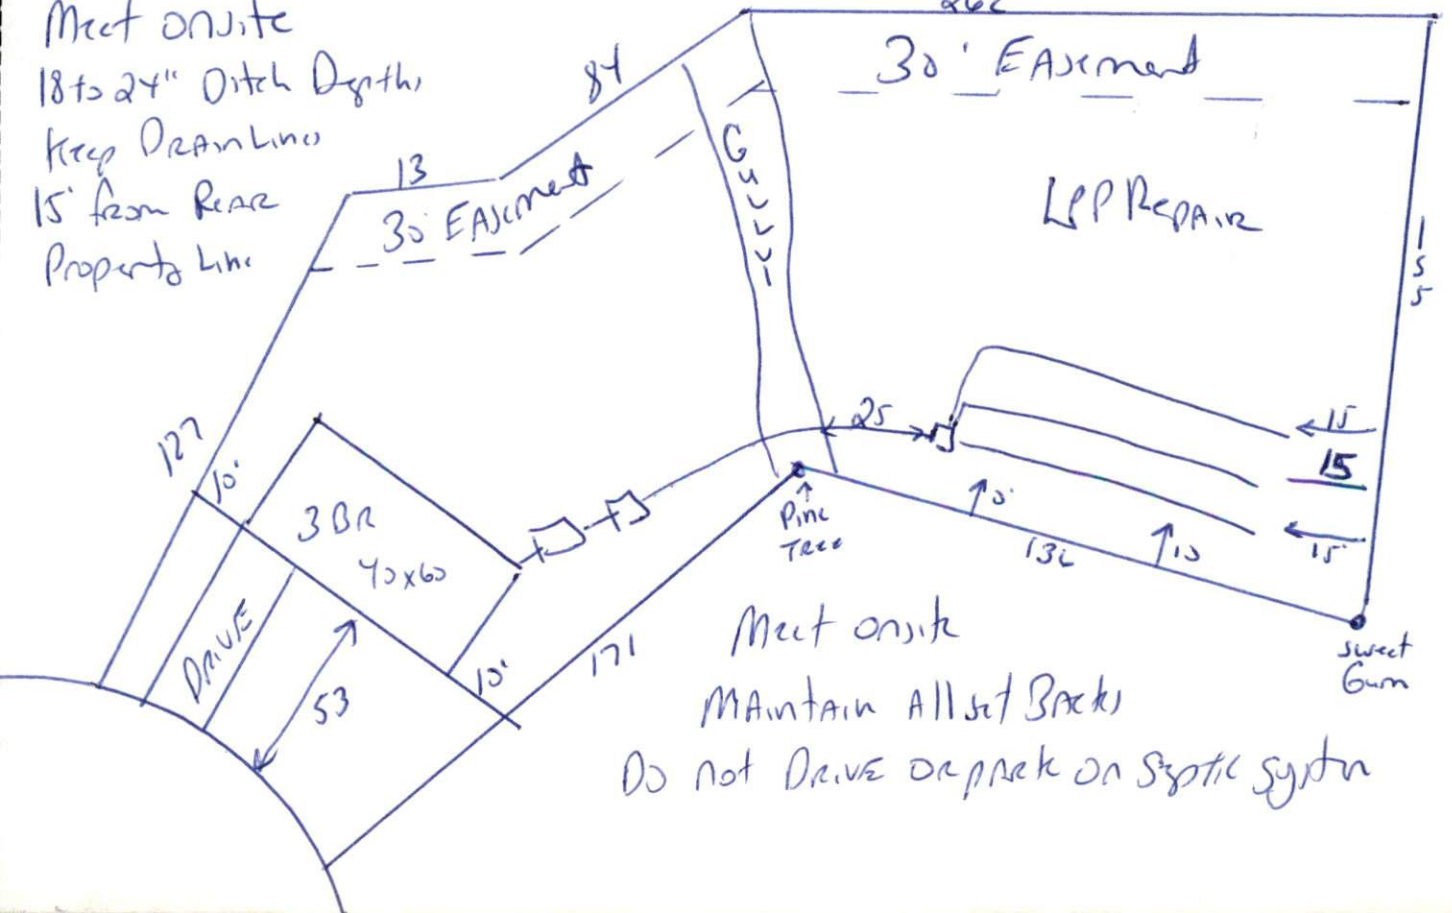 Meet onsite
18 to 24" Ditch Depths
Keep Drain Lines
15' from Rear
Property Line
84
13
30' Easement
Gully
30' Easement
LPP Repair
155
127
10'
3 BR
40x60
DRIVE
53
10'
171
25
15
15
15'
10
Pine
Tree
Sweet
Gum
Meet onsite
Maintain All set Backs
Do not Drive or park on Septic System